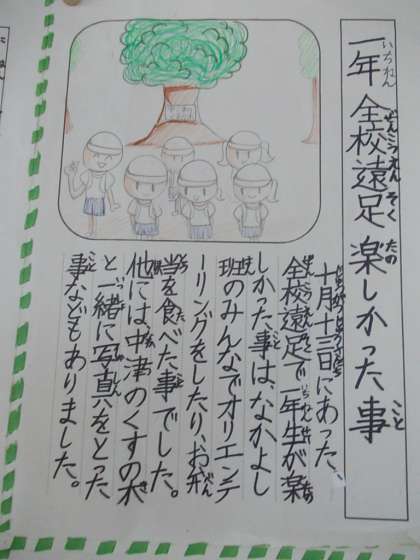 一年 全校遠足 楽しかった事
いちねん ぜんこうえんそく たの こと
十月十三日にあった、
全校遠足で一年生が楽
しかった事は、なかよし
班のみんなでオリエンテ
ーリングをしたり、お弁
当を食べた事でした。
他には中津のくすの木
と一緒に写真をとった
事などもありました。